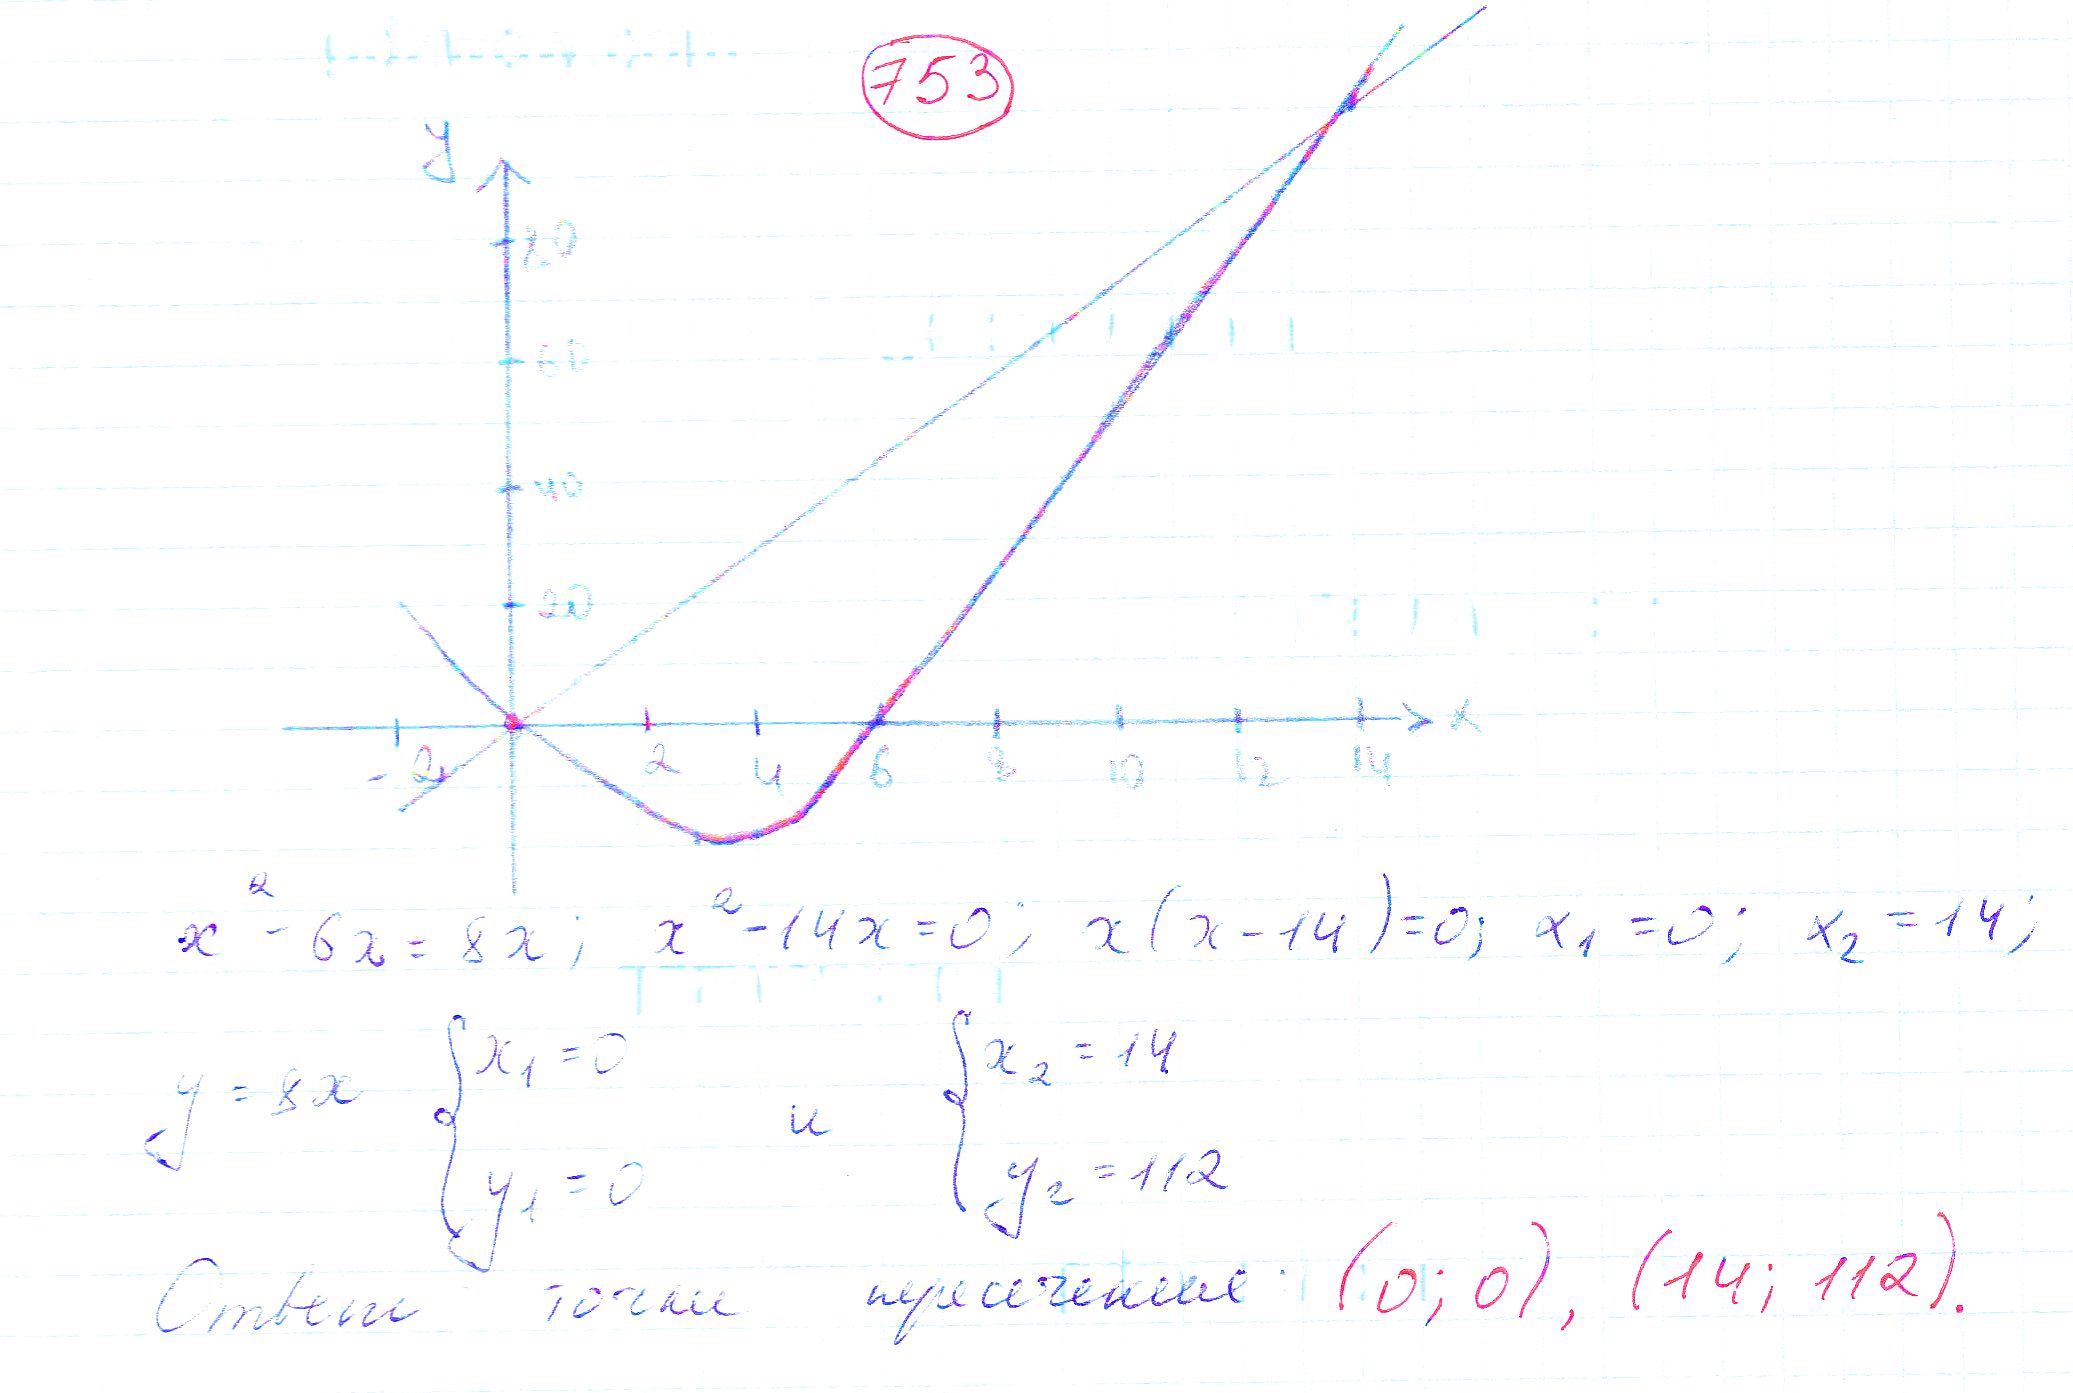 753
y
80
60
40
20
-2 2 4 6 8 10 12 14 x
x² - 6x = 8x; x² - 14x = 0; x(x - 14) = 0; x₁ = 0; x₂ = 14;
y = 8x { x₁ = 0 и { x₂ = 14
y₁ = 0 y₂ = 112
Ответ: точки пересечения: (0; 0), (14; 112).